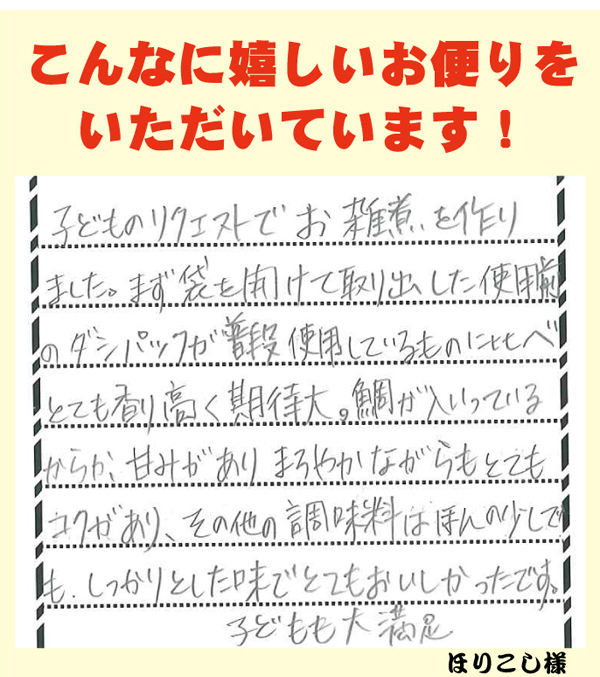 こんなに嬉しいお便りを
いただいています！
子どものリクエストでお雑煮を作り
ました。まず袋を開けて取り出した使用前
のダシパックが普段使用しているものに比べ
とても香り高く期待大。鯛が入いっている
からか、甘みがありまろやかながらもとても
コクがあり、その他の調味料はほんの少しで
も、しっかりとした味でとてもおいしかったです。
子どもも大満足
ほりこし様